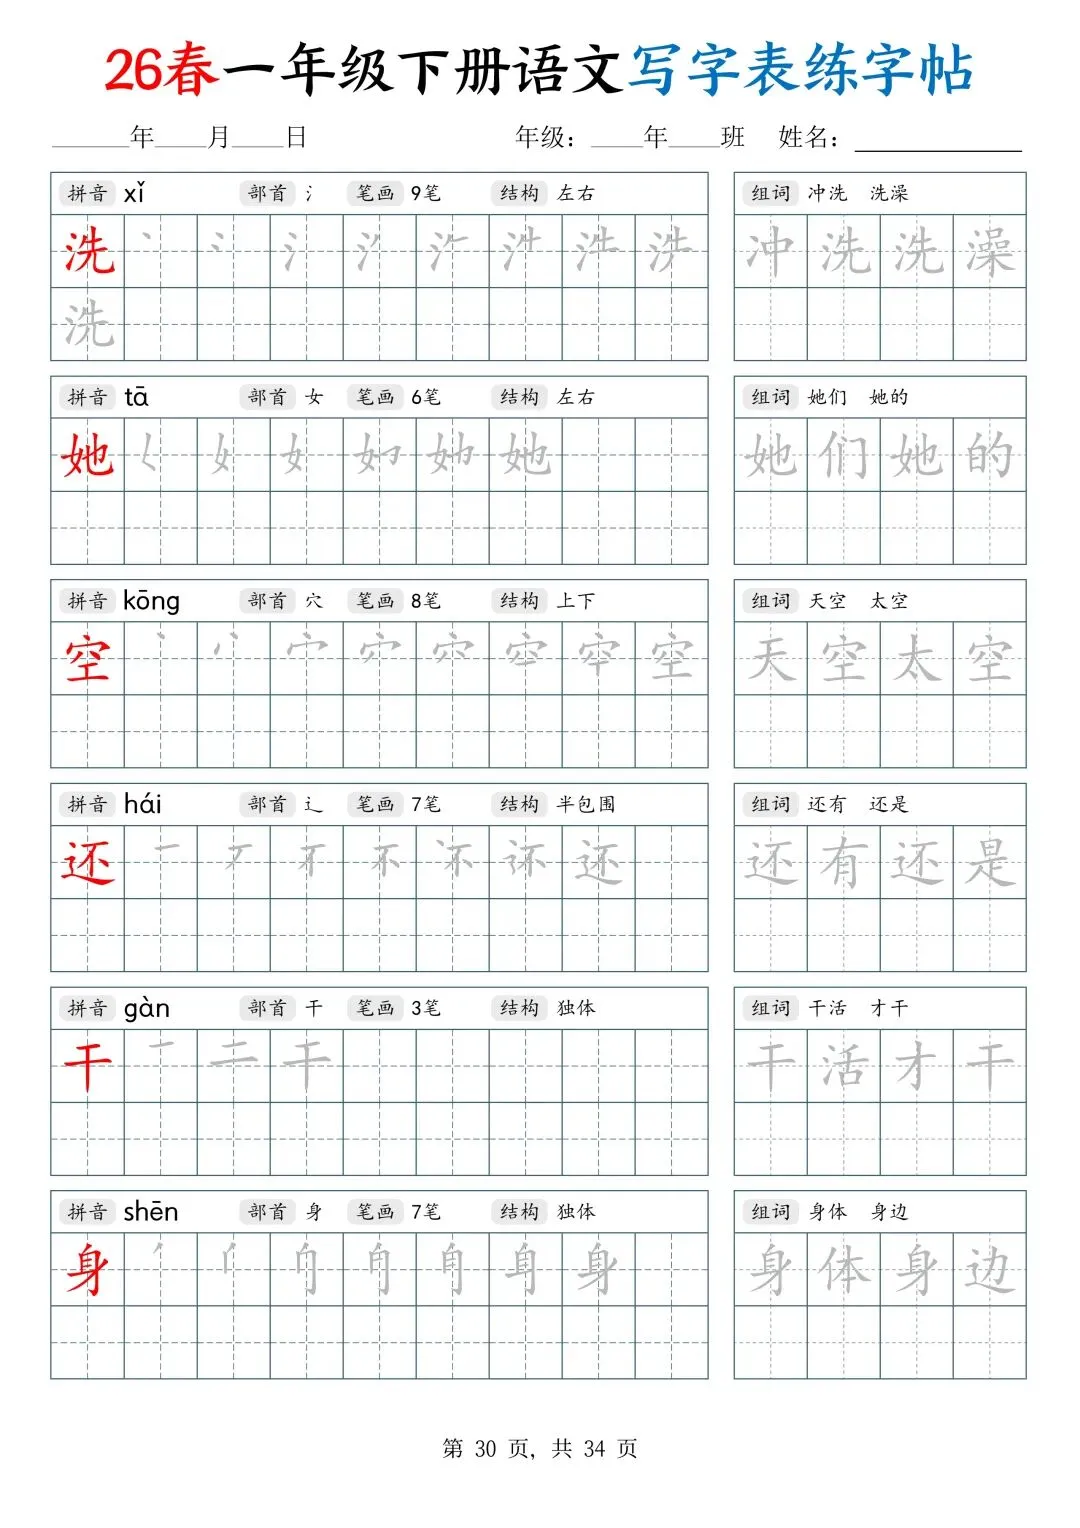 26春一年级下册语文写字表练字帖
______年____月____日 年级：____年____班 姓名：____________
拼音 xǐ 部首 氵 笔画 9笔 结构 左右 组词 冲洗 洗澡
洗 冲洗洗澡
洗
拼音 tā 部首 女 笔画 6笔 结构 左右 组词 她们 她的
她 她 她们她的
拼音 kōng 部首 穴 笔画 8笔 结构 上下 组词 天空 太空
空 空 天空太空
拼音 hái 部首 辶 笔画 7笔 结构 半包围 组词 还有 还是
还 还 还有还是
拼音 gàn 部首 干 笔画 3笔 结构 独体 组词 干活 才干
干 一 二 干 干活才干
拼音 shēn 部首 身 笔画 7笔 结构 独体 组词 身体 身边
身 身 身体身边
第 30 页，共 34 页